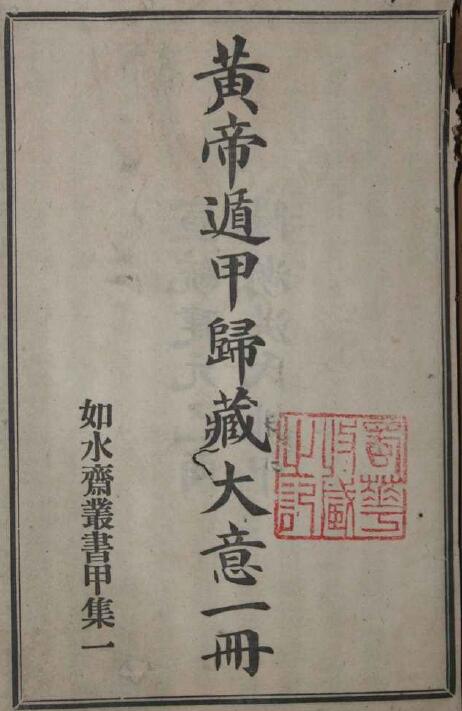 黃帝遁甲歸藏大意一冊
如水齋叢書甲集一